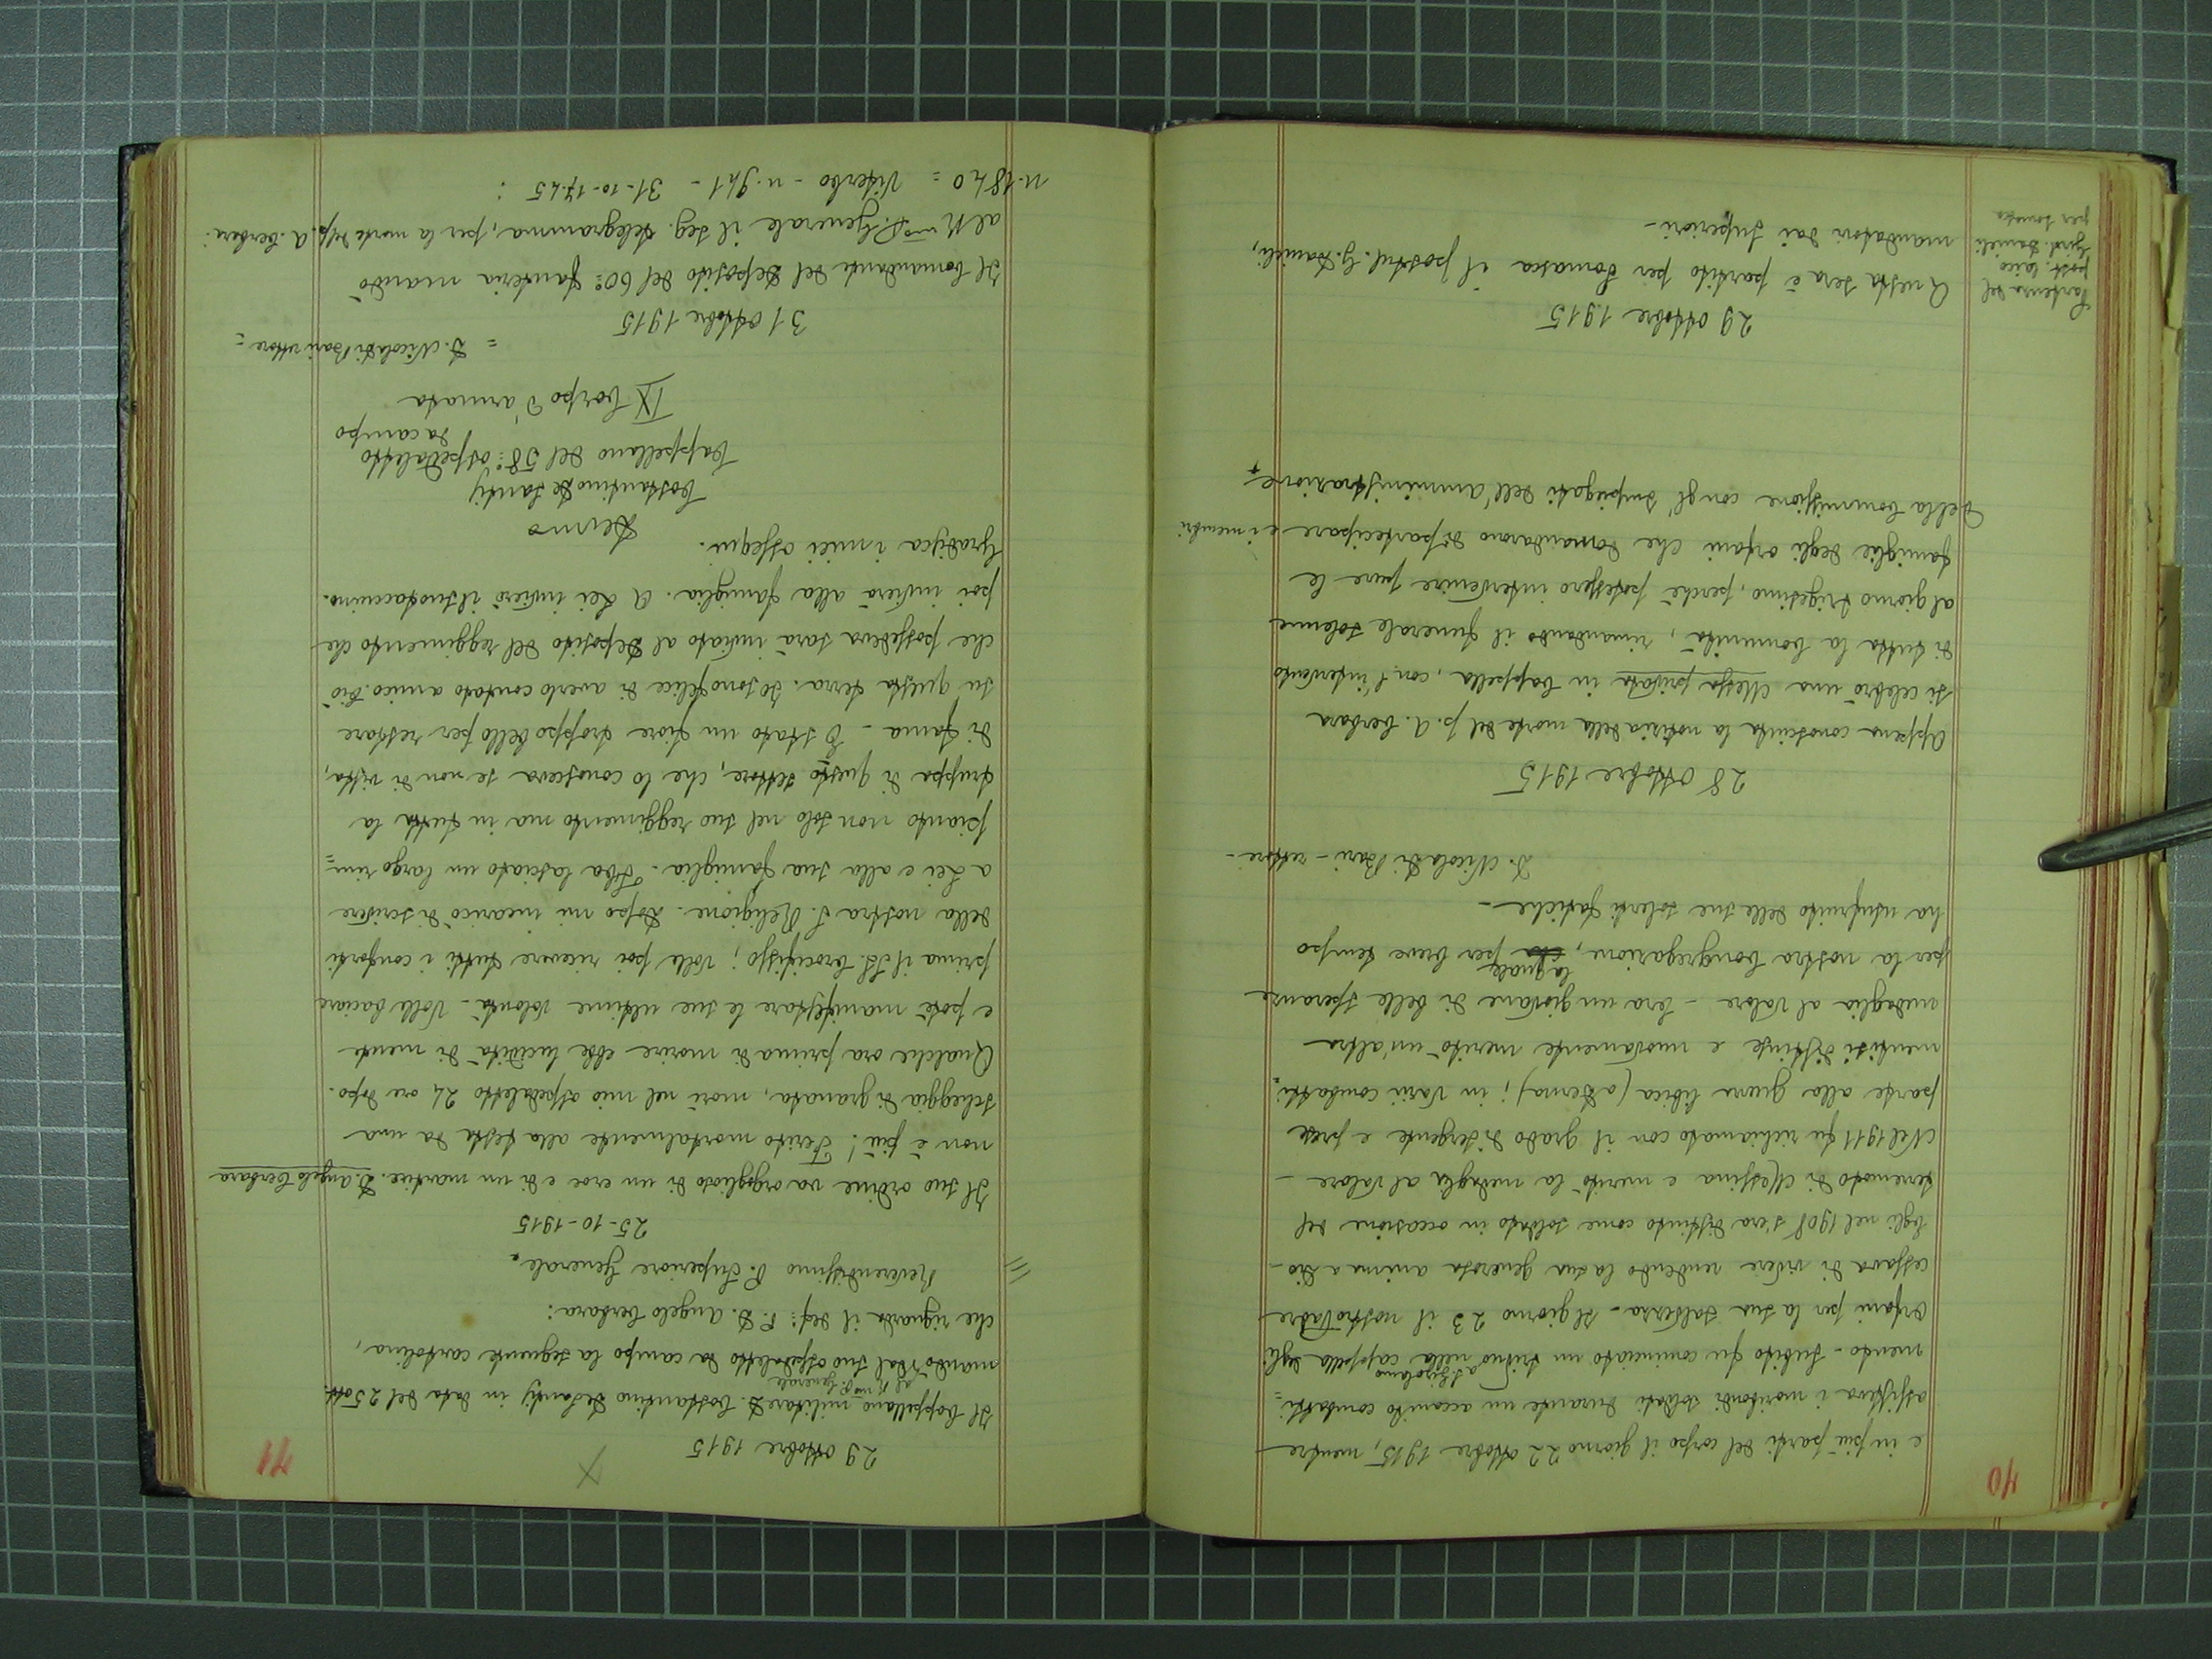 40
e in più parti del corpo il giorno 22 ottobre 1915, mentre
assisteva i moribondi soldati durante un accanito combatti=
mento - Subito fu cominciato un triduo a S. Girolamo nella cappella degli
orfani per la sua salvezza - Il giorno 23 il nostro Padre
cessava di vivere rendendo la sua generosa anima a Dio -
Egli nel 1908 s'era distinto come soldato in occasione del
terremoto di Messina e meritò la medaglia al valore -
Nel 1911 fu richiamato con il grado di sergente e prese
parte alla guerra libica (a Derna); in varii combatti=
menti si distinse e nuovamente meritò un'altra
medaglia al valore - Era un giovane di belle speranze
per la nostra Congregazione, la quale per breve tempo
ha usufruito delle sue solerti fatiche -
D. Nicola Di Bari - rettore -
28 ottobre 1915
Appena conosciuta la notizia della morte del p. A. Cerbara
si celebrò una Messa privata in Cappella, con l'intervento
di tutta la Comunità, rimandando il funerale solenne
al giorno trigesimo, perchè potessero intervenire pure le
famiglie degli orfani che domandarono di partecipare e i membri
della Commissione con gl' impiegati dell'amministrazione
29 ottobre 1915
Partenza del
post. laico
Gius. Danieli
per Somasca
Questa sera è partito per Somasca il postul. G. Danieli,
mandatovi dai Superiori -
71
29 ottobre 1915
Il Cappellano militare D. Costantino De Santis in data del 25 ott.
mandò al R.mo P. Generale dal suo ospedaletto da campo la seguente cartolina,
che riguarda il def: P. D. Angelo Cerbara:
Reverendissimo P. Superiore Generale.
25-10-1915
Il suo ordine va orgoglioso di un eroe e di un martire. D. Angelo Cerbara
non è più! Ferito mortalmente alla testa da una
scheggia di granata, morì nel mio ospedaletto 24 ore dopo.
Qualche ora prima di morire ebbe lucidità di mente
e potè manifestare le sue ultime volontà - Volle baciare
prima il SS. Crocifisso; volle poi ricevere tutti i conforti
della nostra S. Religione. Dopo mi incaricò di scrivere
a Lei e alla sua famiglia. Ha lasciato un largo rim=
pianto non solo nel suo reggimento ma in tutta la
truppa di questo settore, che lo conosceva se non di vista,
di fama - È stato un fiore troppo bello per restare
su questa terra. Io sono felice di averlo contato amico. Ciò
che possedeva sarà inviato al Deposito del reggimento che
poi invierà alla famiglia. A Lei invierò il suo taccuino.
Gradisca i miei ossequi.
Dev.mo
Costantino De Santis
Cappellano del 58º ospedaletto
da campo
IX Corpo d'armata
= D. Nicola Di Bari rettore =
31 ottobre 1915
Il Comandante del Deposito del 60º fanteria mandò
al R.mo P. Generale il seg. telegramma, per la morte del p. A. Cerbara:
n. 1840 = Viterbo - n. 941 - 31-10-17.45 :